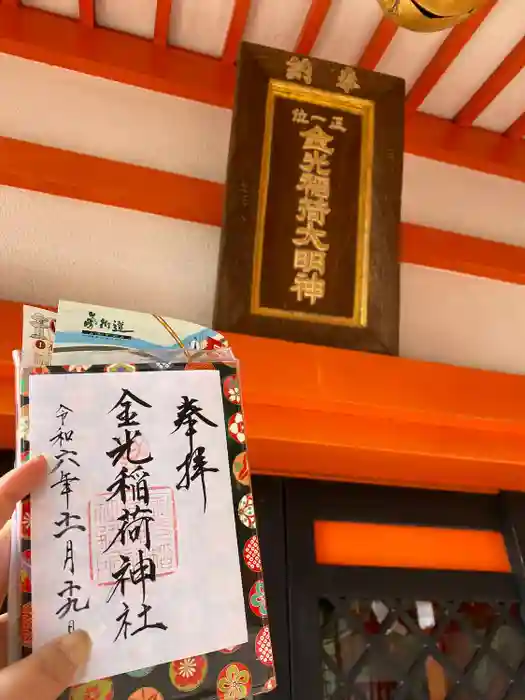 奉納
正一位
金光稲荷大明神
参街道
奉拝
金光稲荷神社
令和六年十一月十九日